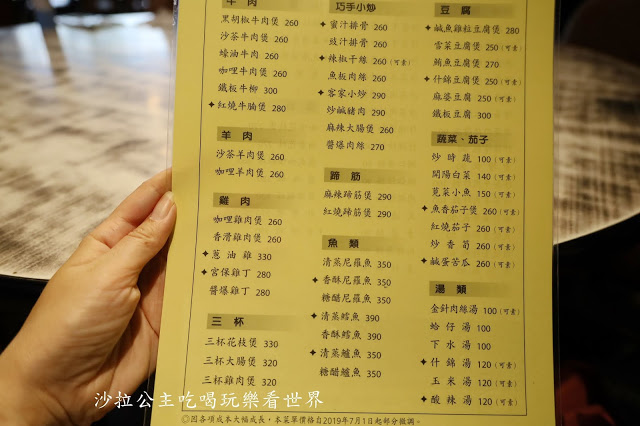 牛 肉
黑胡椒牛肉煲 260
沙茶牛肉煲 260
蠔油牛肉 260
咖哩牛肉煲 260
鐵板牛柳 300
✦紅燒牛腩煲 280
羊 肉
沙茶羊肉煲 260
咖哩羊肉煲 260
雞 肉
咖哩雞肉煲 260
香滑雞肉煲 260
✦蔥油雞 260
✦宮保雞丁 280
醬爆雞丁 280
三 杯
三杯花枝煲 330
三杯大腸煲 320
三杯雞肉煲 320
巧手小炒
✦蜜汁排骨 260
豉汁排骨 260
✦辣椒干絲 260(可素)
魚板肉絲 260
✦客家小炒 290
炒鹹豬肉 290
麻辣大腸煲 260
醬爆肉絲 270
蹄 筋
麻辣蹄筋煲 290
紅燒蹄筋煲 290
魚 類
清蒸尼羅魚 350
✦香酥尼羅魚 350
糖醋尼羅魚 350
✦清蒸鱈魚 390
香酥鱈魚 390
✦清蒸鱸魚 350
糖醋鱸魚 350
豆 腐
✦鹹魚雞粒豆腐煲 280
雪菜豆腐煲 250(可素)
鮪魚豆腐煲 270
✦什錦豆腐煲 250(可素)
麻婆豆腐 250(可素)
鐵板豆腐 300
蔬菜、茄子
炒時蔬 100(可素)
開陽白菜 140(可素)
莧菜小魚 150(可素)
✦魚香茄子煲 260(可素)
紅燒茄子 260(可素)
炒香菇 260(可素)
✦鹹蛋苦瓜 260(可素)
湯 類
金針肉絲湯 100(可素)
蛤仔湯 100
下水湯 100
✦什錦湯 120(可素)
玉米湯 120
✦酸辣湯 120(可素)
◎因各項成本大幅成長，本菜單價格自2019年7月1日起部分微調。
沙拉公主吃喝玩樂看世界